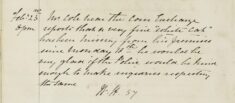 Feby 25th Mr Cole near the Corn Exchange
8pm reports that a very fine "White Cat"
has been missing from his premises
since Monday 10th he would be
very glad if the Police would be kind
enough to make enquiries respecting
the same